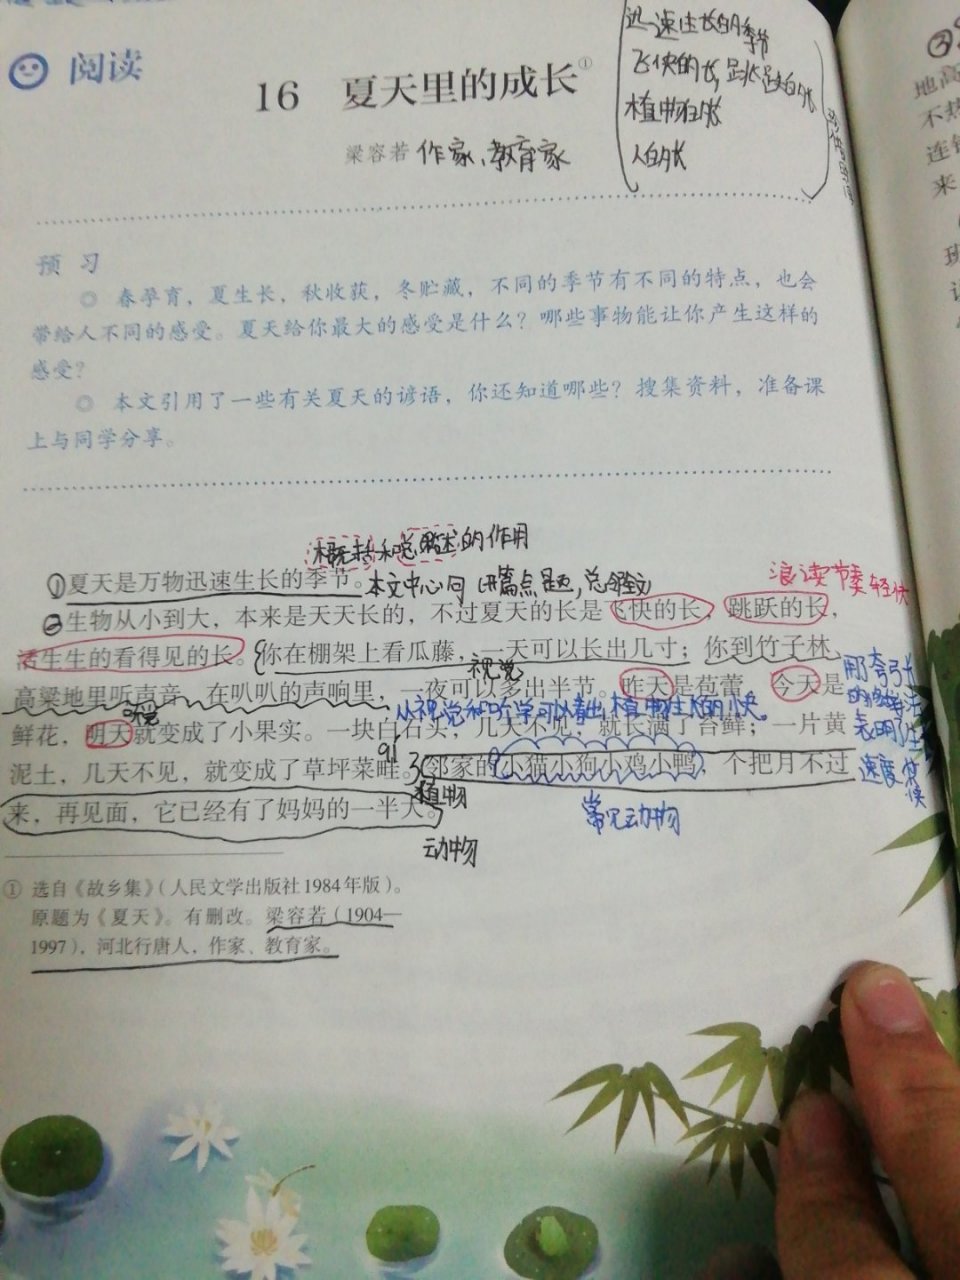 阅读
16 夏天里的成长①
梁容若 作家、教育家
迅速生长的季节
飞快的长,跳跃的长
植物的长
人的长
预 习
◎ 春孕育，夏生长，秋收获，冬贮藏，不同的季节有不同的特点，也会
带给人不同的感受。夏天给你最大的感受是什么？哪些事物能让你产生这样的
感受？
◎ 本文引用了一些有关夏天的谚语，你还知道哪些？搜集资料，准备课
上与同学分享。
概括和总概述的作用
①夏天是万物迅速生长的季节。本文中心句(开篇点题,总领全文)
浪读节奏轻快
②生物从小到大，本来是天天长的，不过夏天的长是飞快的长，跳跃的长，
活生生的看得见的长。你在棚架上看瓜藤，一天可以长出几寸；你到竹子林、
视觉
高粱地里听声音，在叭叭的声响里，一夜可以多出半节。昨天是苞蕾，今天是
听觉
从视觉和听觉可以看出植物生长的快。
鲜花，明天就变成了小果实。一块白石头，几天不见，就长满了苔藓；一片黄
泥土，几天不见，就变成了草坪菜畦。邻家的小猫小狗小鸡小鸭，个把月不过
植物
来，再见面，它已经有了妈妈的一半大。
常见动物
动物
用夸张
表明了生
速度
① 选自《故乡集》（人民文学出版社1984年版）。
原题为《夏天》。有删改。梁容若（1904—
1997），河北行唐人，作家、教育家。
③
地高
不热
连
来